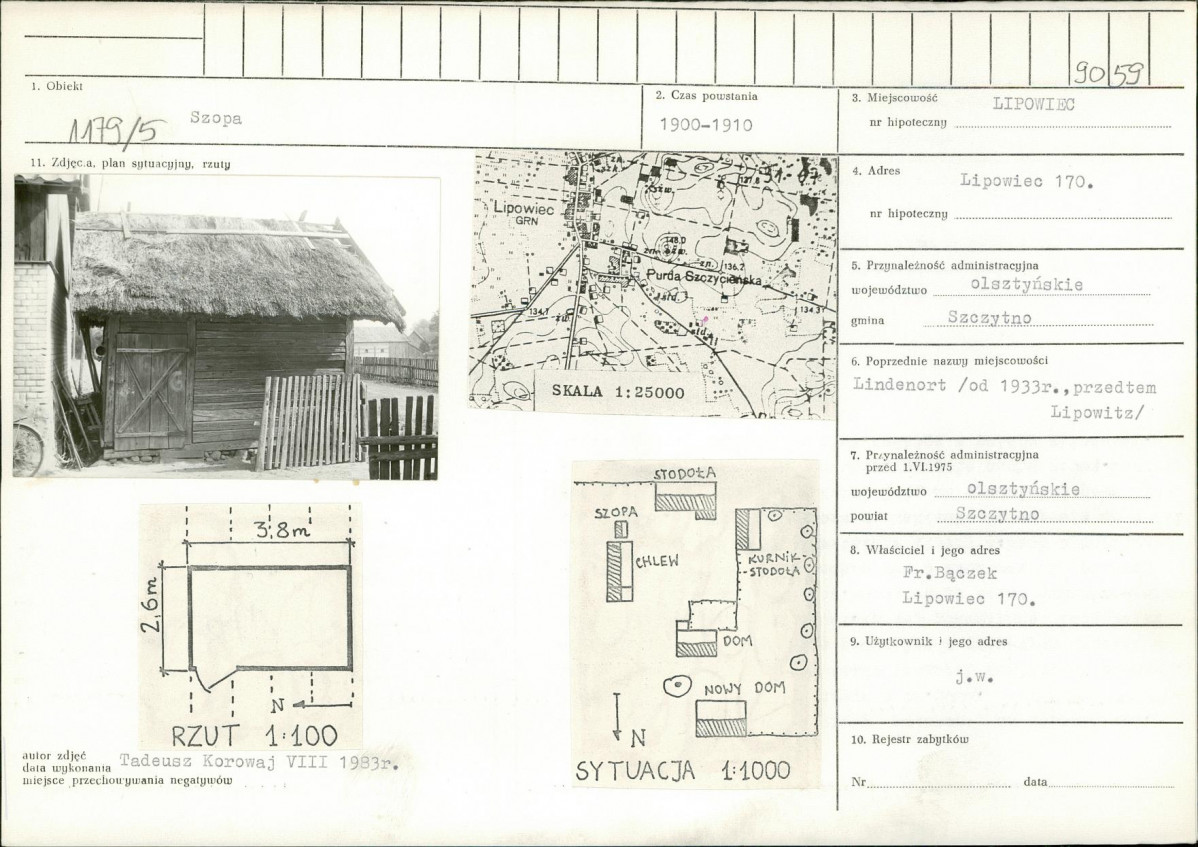 9059
1. Obiekt
1179/5 Szopa
2. Czas powstania
1900-1910
3. Miejscowość LIPOWIEC
nr hipoteczny
11. Zdjęcia, plan sytuacyjny, rzuty
4. Adres
Lipowiec 170.
nr hipoteczny
5. Przynależność administracyjna
województwo olsztyńskie
gmina Szczytno
6. Poprzednie nazwy miejscowości
Lindenort /od 1933r.,przedtem
Lipowitz/
7. Przynależność administracyjna
przed 1.VI.1975
województwo olsztyńskie
powiat Szczytno
8. Właściciel i jego adres
Fr.Bączek
Lipowiec 170.
9. Użytkownik i jego adres
j.w.
10. Rejestr zabytków
Nr data
Lipowiec
GRN
Purda Szczycieńska
148,0
136,7
134,1
134,3
137,8
SKALA 1:25000
3,8m
2,6m
N
RZUT 1:100
STODOŁA
SZOPA
CHLEW
KURNIK-
-STODOŁA
DOM
NOWY DOM
N
SYTUACJA 1:1000
autor zdjęć
data wykonania Tadeusz Korowaj VIII 1983r.
miejsce przechowywania negatywów